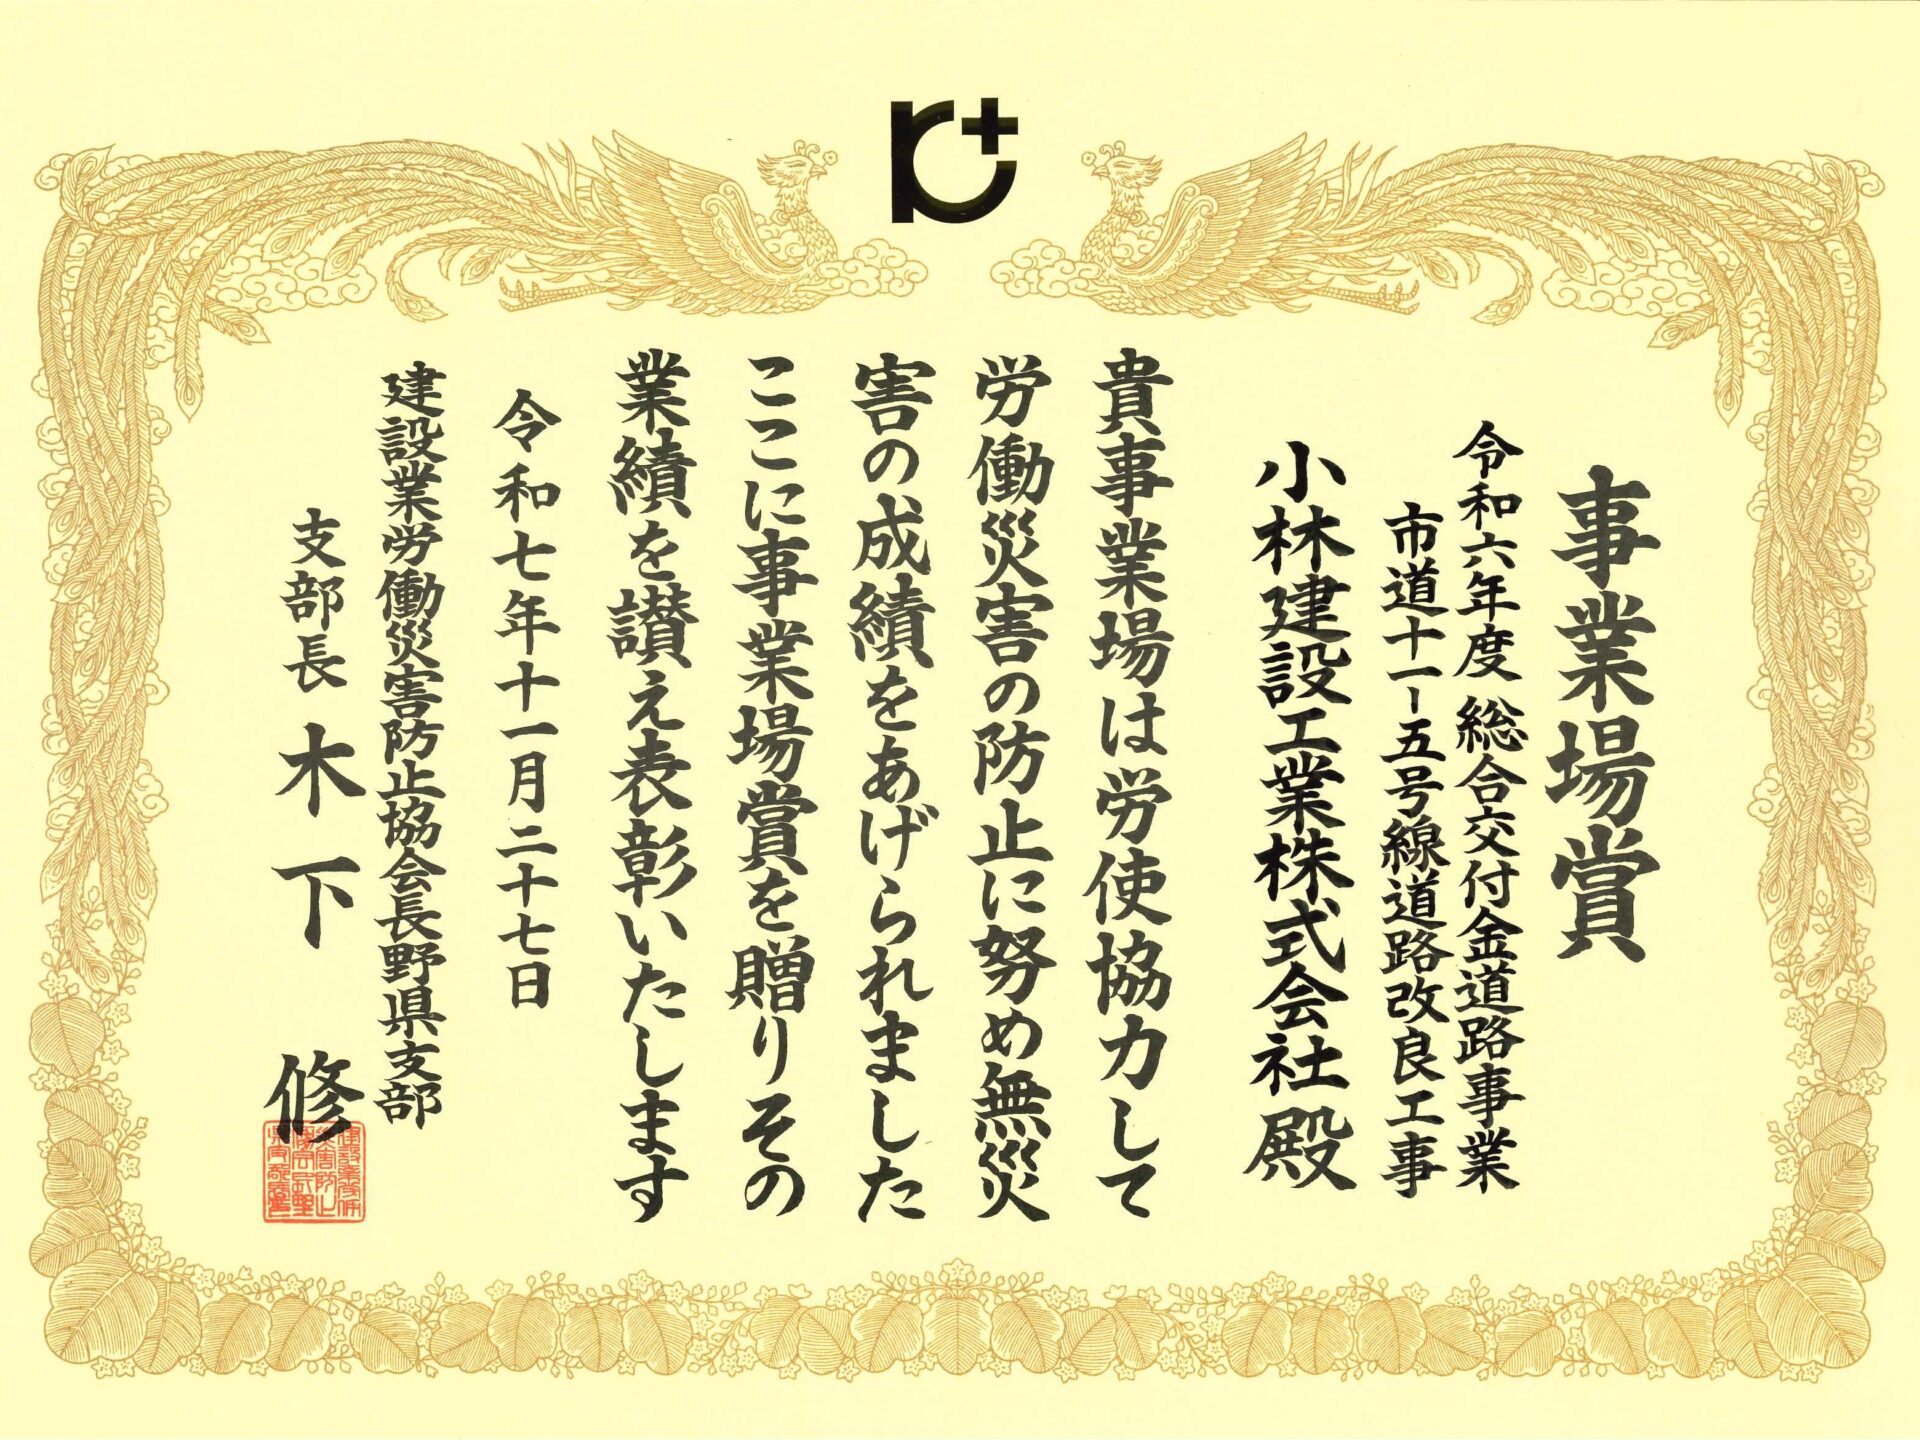 事業場賞
令和六年度 総合交付金道路事業
市道十一-五号線道路改良工事
小林建設工業株式会社 殿
貴事業場は労使協力して
労働災害の防止に努め無災
害の成績をあげられました
ここに事業場賞を贈りその
業績を讃え表彰いたします
令和七年十一月二十七日
建設業労働災害防止協会長野県支部
支部長 木下 修